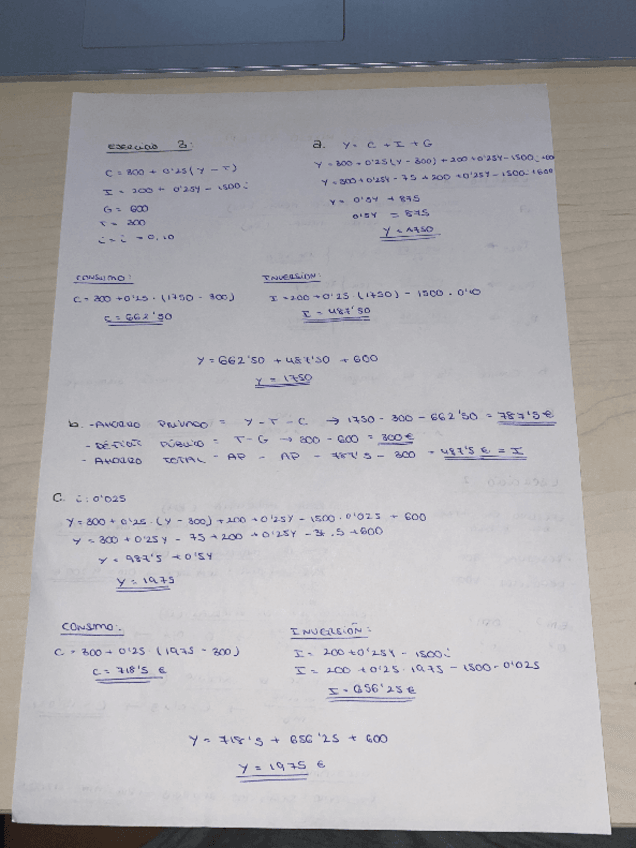 EXERCICIO 3:
C = 300 + 0'25 (Y - T)
I = 200 + 0'25Y - 1500i
G = 600
T = 300
i = i = 0,10
a. Y = C + I + G
Y = 300 + 0'25 (Y - 300) + 200 + 0'25Y - 1500i + 600
Y = 300 + 0'25Y - 75 + 200 + 0'25Y - 1500 + 600
Y = 0'5Y + 875
0'5Y = 875
Y = 1750
CONSUMO:
C = 300 + 0'25 · (1750 - 300)
C = 662'50
INVERSIÓN:
I = 200 + 0'25 · (1750) - 1500 · 0'10
I = 487'50
Y = 662'50 + 487'50 + 600
Y = 1750
b. - AHORRO PRIVADO = Y - T - C → 1750 - 300 - 662'50 = 787'5 €
- DÉFICIT PÚBLICO = T - G → 300 - 600 = 300 €
- AHORRO TOTAL - AP - AP - 787'5 - 300 - 487'5 € = I
C. i: 0'025
Y = 300 + 0'25 · (Y - 300) + 200 + 0'25Y - 1500 · 0'025 + 600
Y = 300 + 0'25Y - 75 + 200 + 0'25Y - 37.5 + 600
Y = 987'5 + 0'5Y
Y = 1975
CONSMO:
C = 300 + 0'25 (1975 - 300)
C = 718'5 €
INVERSIÓN:
I = 200 + 0'25Y - 1500i
I = 200 + 0'25 · 1975 - 1500 · 0'025
I = 656'25 €
Y = 718'5 + 656'25 + 600
Y = 1975 €